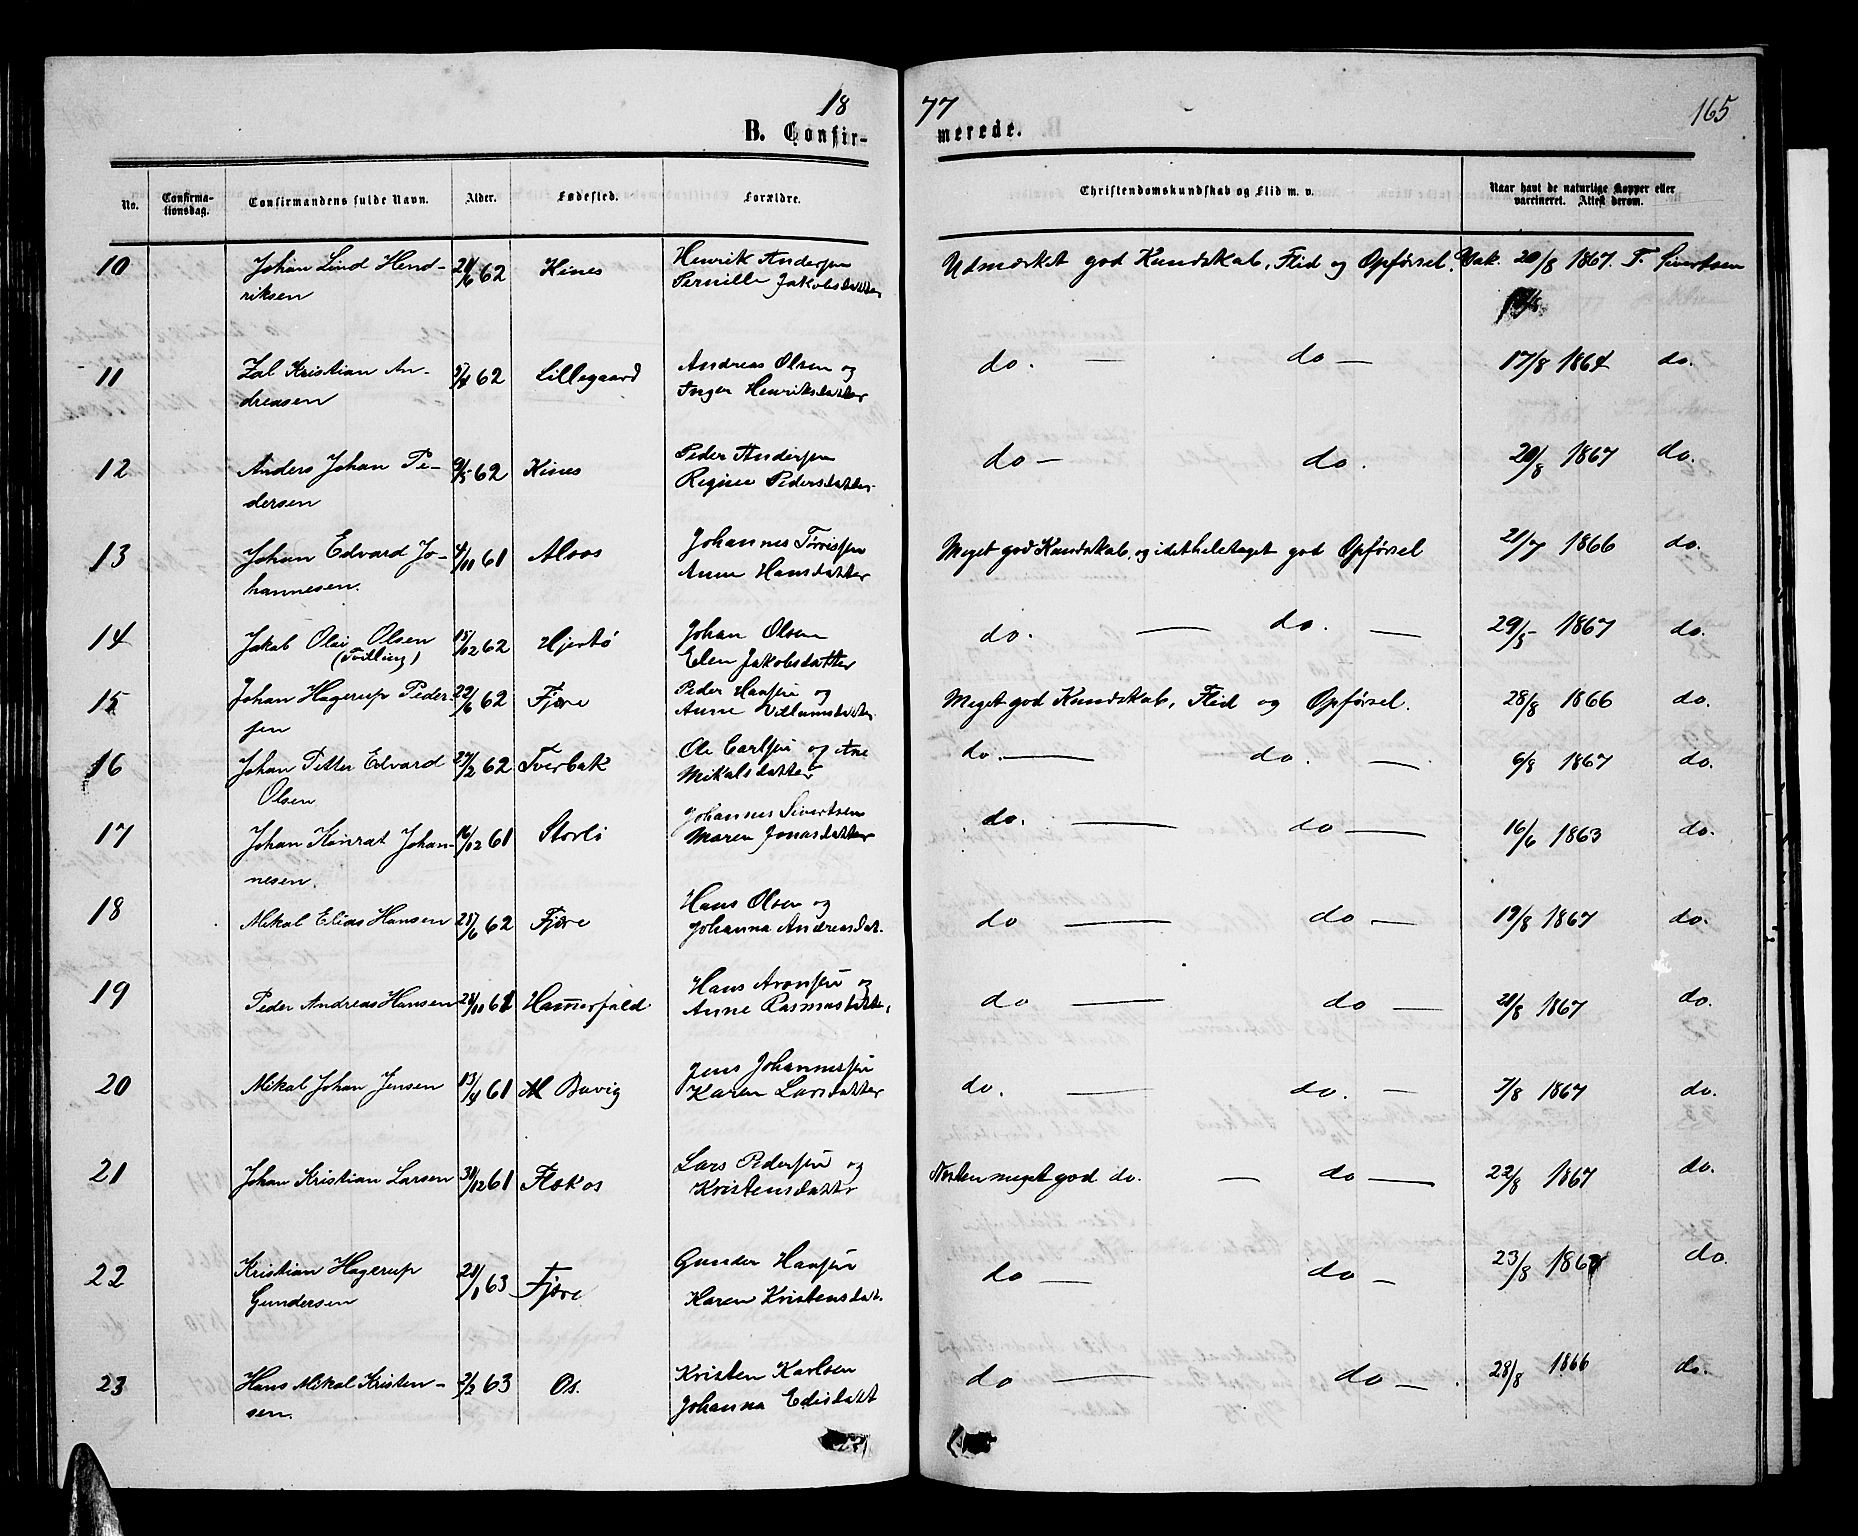 18 77
165
B. Confir- merede.
No. Confirmationsdag. Confirmandens fulde Navn. Alder. Fødested. Forældre. Christendomskundskab og Flid m. v. Naar havt de naturlige Kopper eller vaccineret. Attest derom.
10 Johan Lind Hend- 62 Kines Henrik Andersen Udmærket god Kundskab, Flid og Opførsel. Vak. 20/8 1867. T. Sivertsen
riksen Pernille Jakobsdatter
11 Kristian An- 62 Lillegaard Andreas Olsen og do. — do — 17/8 1864 do.
dreasen Inger Henriksdatter
12 Anders Johan Pe- 9/5 62 Kines Peder Andersen do — do. 20/8 1867 do.
dersen Regine Pedersdatter
13 Johan Edvard Jo- 4/11 61 Alsos Johannes Tørrissen Meget god Kundskab, og idetheletaget god Opførsel 21/7 1866 do.
hannesen. Anne Hansdatter
14 Jakob Olai Olsen 15/12 62 Hjertø Johan Olsen do. — do. — 29/5 1867 do.
(Tvilling) Elen Jakobsdatter
15 Johan Hagerup Peder- 22/6 62 Fjære Peder Hansen og Meget god Kundskab, Flid og Opførsel. 28/8 1866 do.
sen Anne Villumsdatter
16 Johan Petter Edvard 27/2 62 Tverbak Ole Carlsen og Ane do. — do. — 6/8 1867 do.
Olsen Mikalsdatter
17 Johan Konrat Johan- 16/12 61 Storlö Johannes Sivertsen do. — do — 16/6 1863 do.
nesen. Maren Jonasdatter
18 Mikal Elias Hansen 28/6 62 Fjære Hans Olsen og do — do — 19/8 1867 do.
Johanna Andreasdat.
19 Peder Andreas Hansen 28/11 61 Hamerfald Hans Aronsen og do — do — 20/8 1867 do.
Anne Rasmusdatter
20 Mikal Johan Jensen 13/4 61 Bovig Jens Johannessen do. — do. — 7/8 1867 do.
Karen Larsdatter
21 Johan Kristian Larsen 31/12 61 Flakos Lars Pedersen og Næsten meget god do. — do — 22/8 1867 do.
Kristensdatter
22 Kristian Hagerup 21/1 63 Fjære Gunder Hansen do — do — 23/8 do.
Gundersen Karen Kristensdat.
23 Hans Mikal Kristen- 2/2 63 Os. Kristen Karlsen do — do — 28/8 1866 do.
sen. Johanna Edisdatt